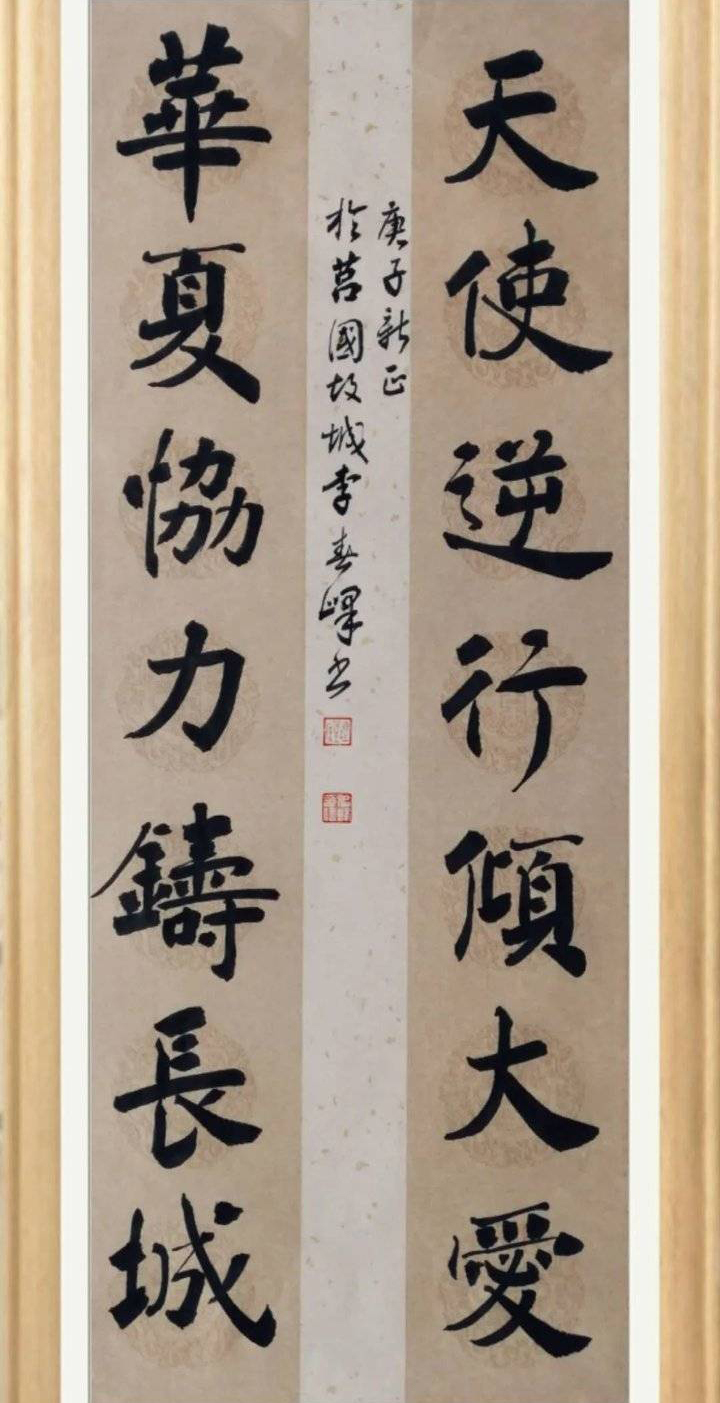 天使逆行傾大愛
庚子新正
於莒國故城李春峄书
華夏恊力鑄長城